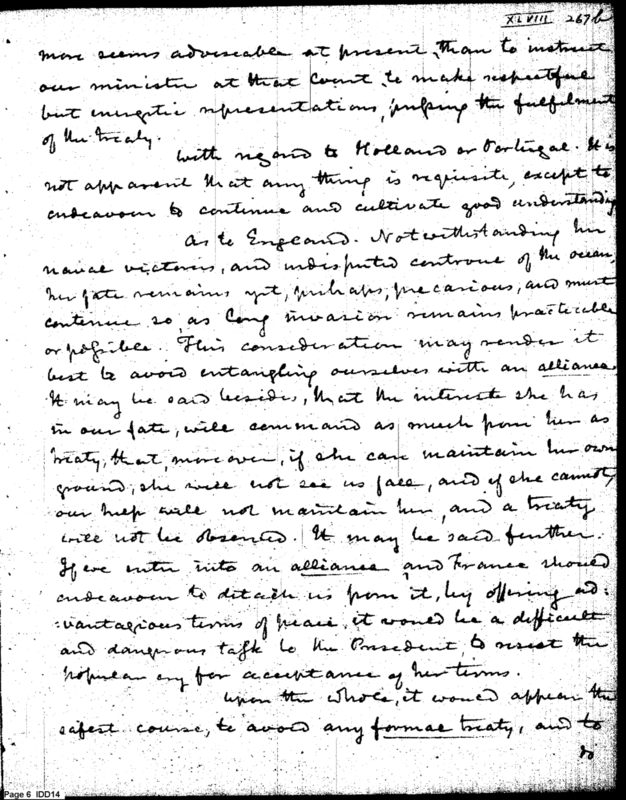 XLVIII 267b
more seems adviseable at present, than to instruct
our minister at that Court, to make respectful
but energetic representations, pressing the fulfilment
of the treaty.
With regard to Holland or Portugal. It is
not apparent that any thing is requisite, except to
endeavour to continue and cultivate good understanding
As to England. Notwithstanding her
naval victories, and undisputed controul of the ocean,
her fate remains yet, perhaps, precarious, and must
continue so, as long invasion remains practicable
or possible. This consideration may render it
best to avoid entangling ourselves with an alliance.
It may be said besides, that the interest she has
in our fate, will command as much from her as
treaty, that, moreover, if she can maintain her own
ground, she will not see us fall, and if she cannot,
our help will not maintain her, and a treaty
will not be observed. It may be said further.
If we enter into an alliance, and France should
endeavour to detach us from it, by offering ad:
:vantagious terms of peace, it would be a difficult
and dangerous task to the President, to resist the
popular cry for acceptance of her terms.
Upon the whole, it would appear the
safest course, to avoid any formal treaty, and to
do
Page 6 IDD14